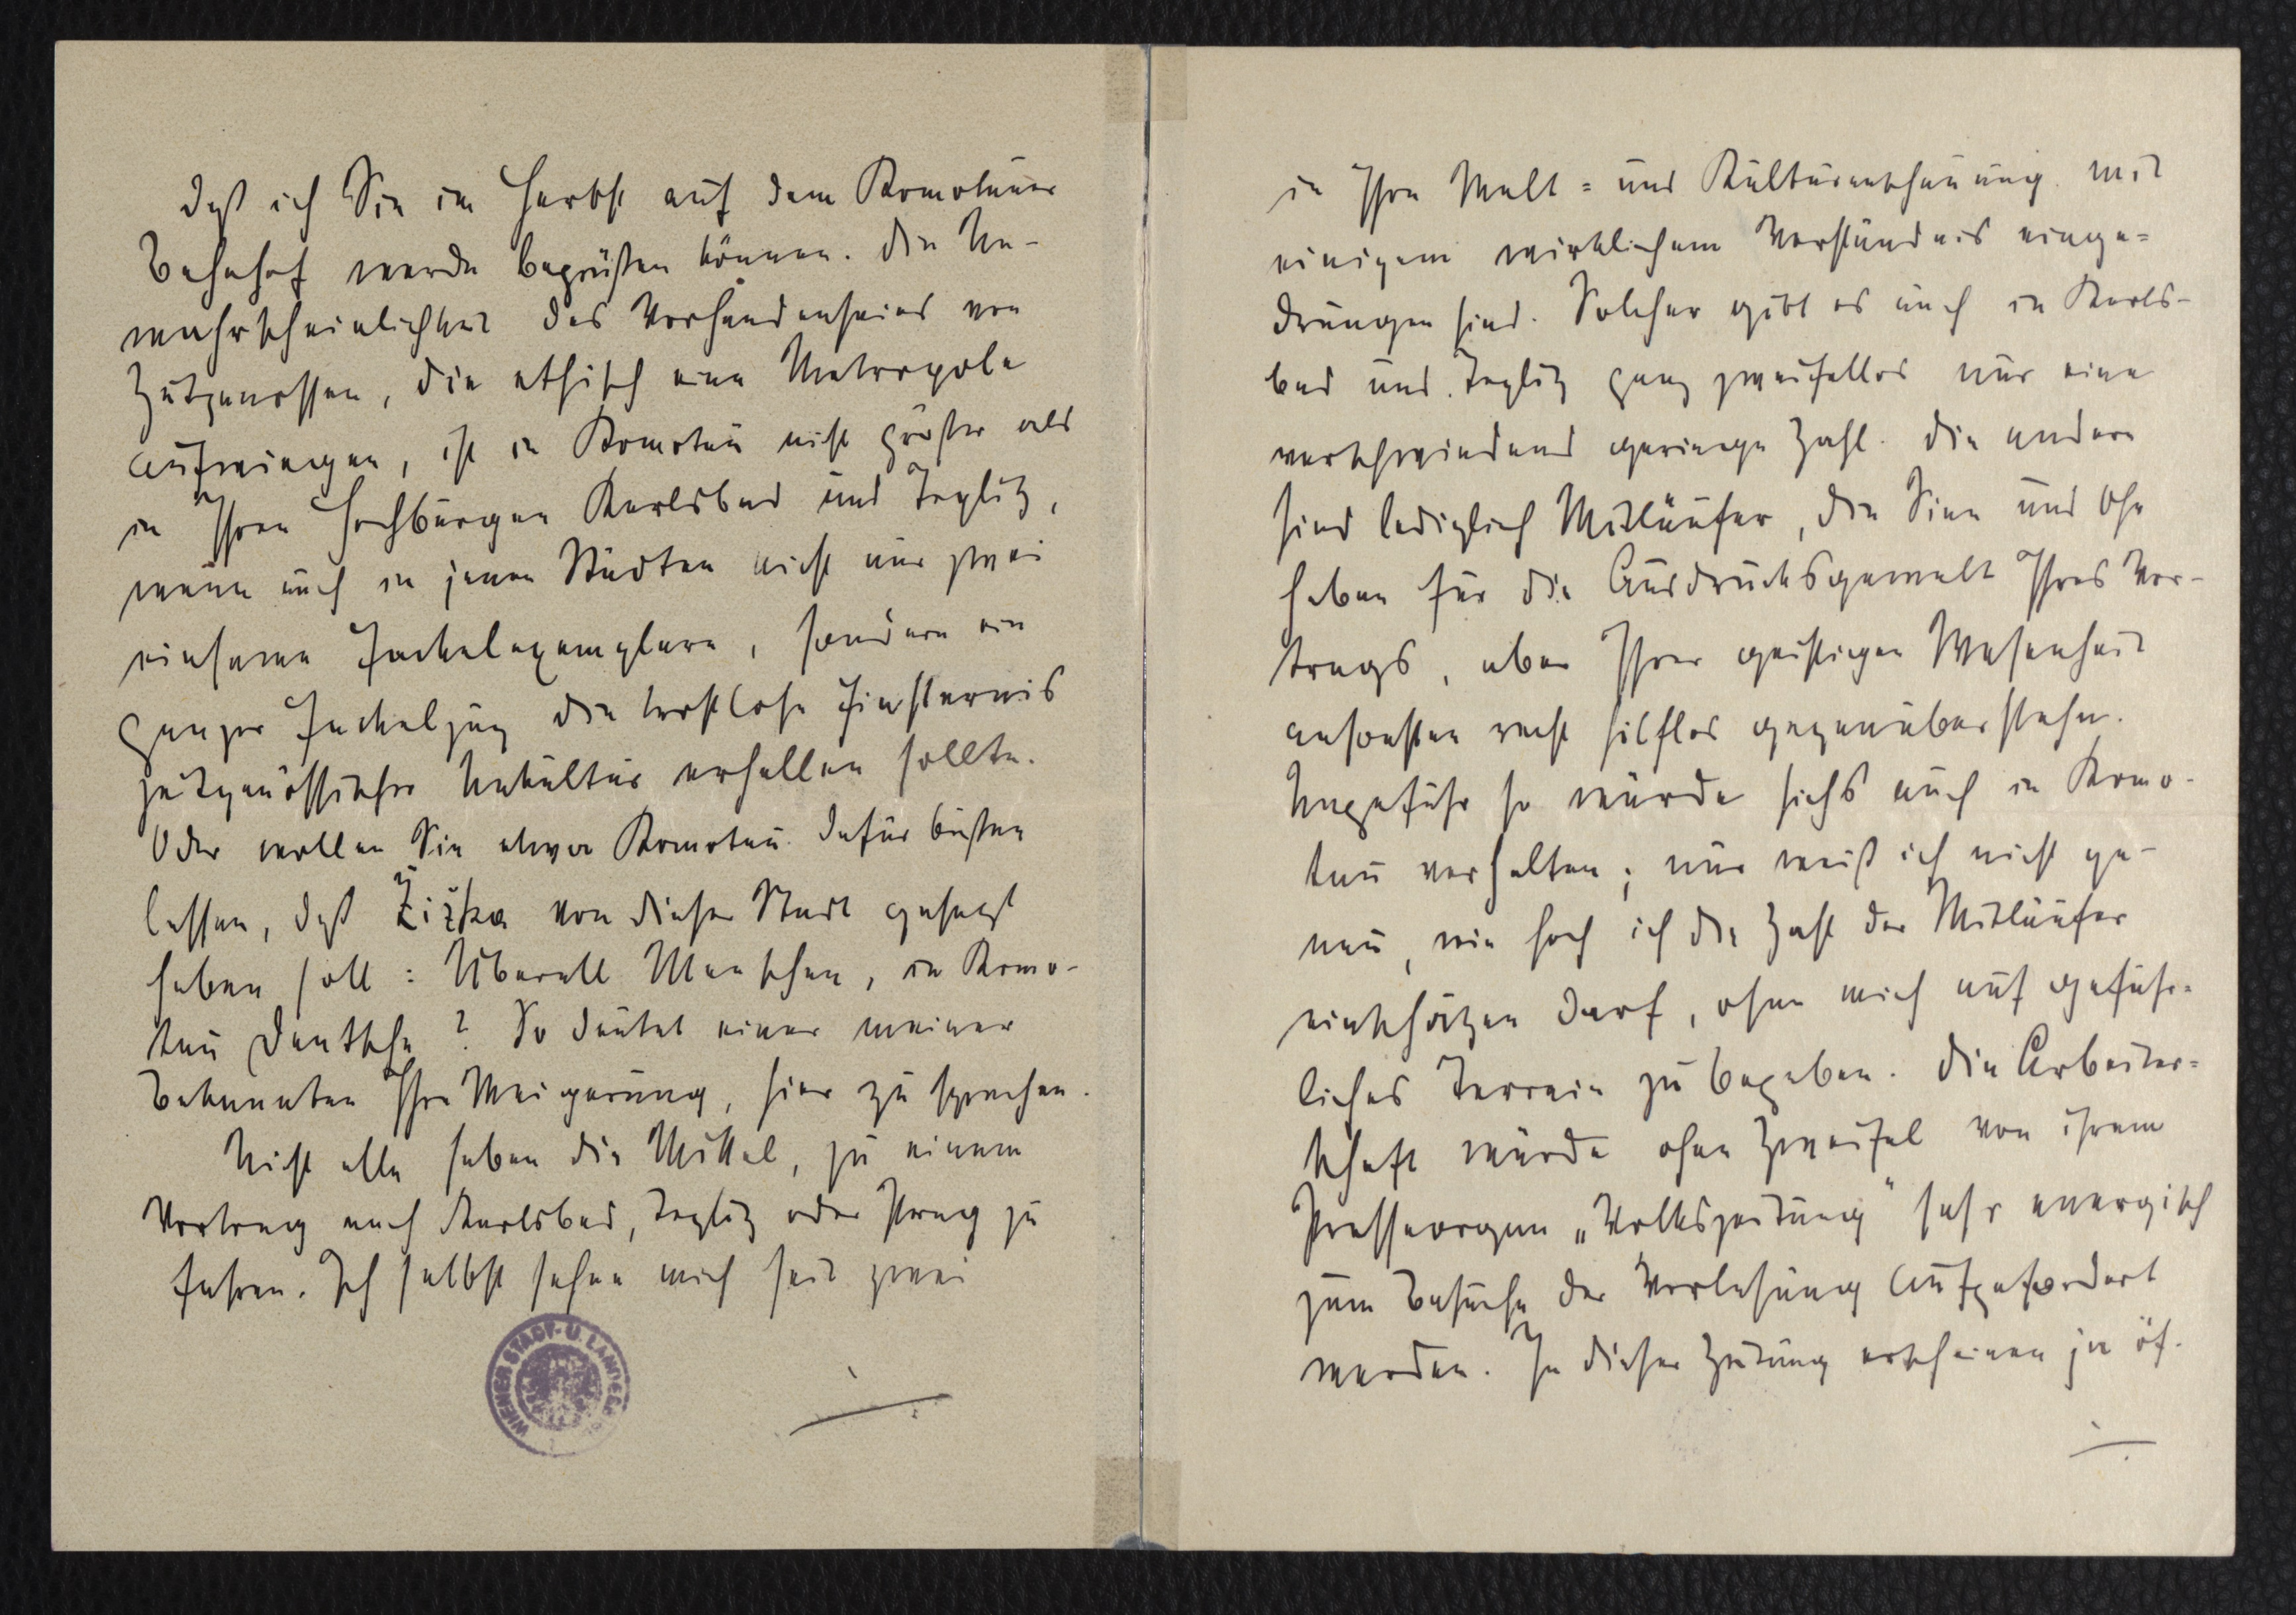 daß ich Sie im Herbst auf dem Komotauer
Bahnhof werde begrüßen können. Die Un-
wahrscheinlichkeit des Vorhandenseins von
Zeitgenossen, die ethisch eine Metropole
aufwiegen, ist in Komotau nicht größer als
in Ihren Hochburgen Karlsbad und Teplitz,
wenn auch in jenen Städten nicht nur zwei
einsame Fackelexemplare, sondern ein
ganzer Fackelzug die trostlose Finsternis
zeitgenössischer Unkultur erhellen sollte.
Oder wollen Sie etwa Komotau dafür büßen
lassen, daß Žižka von dieser Stadt gesagt
haben soll: Überall Menschen, in Komo-
tau Deutsche? So deutet einer meiner
Bekannten Ihre Weigerung, hier zu sprechen.
Nicht alle haben die Mittel, zu einem
Vortrag nach Karlsbad, Teplitz oder Prag zu
fahren. Ich selbst sehne mich seit zwei
WIENER STADT- U. LANDES
in Ihre Welt- und Kulturanschauung mit
einigem wirklichem Verständnis einge-
drungen sind. Solcher gibt es auch in Karls-
bad und Teplitz ganz zweifellos nur eine
verschwindend geringe Zahl. Die andern
sind lediglich Mitläufer, die Sinn und Ohr
haben für die Ausdrucksgewalt Ihres Vor-
trags, aber Ihrer geistigen Wesenheit
ansonsten recht hilflos gegenüberstehn.
Ungefähr so würde sichs auch in Komo-
tau verhalten; nur weiß ich nicht ge-
nau, wie hoch ich die Zahl der Mitläufer
einschätzen darf, ohne mich auf gefähr-
liches Terrain zu begeben. Die Arbeiter-
schaft würde ohne Zweifel von ihrem
Presseorgan „Volkszeitung“ sehr energisch
zum Besuche der Vorlesung aufgefordert
werden. In dieser Zeitung erscheinen ja öf-